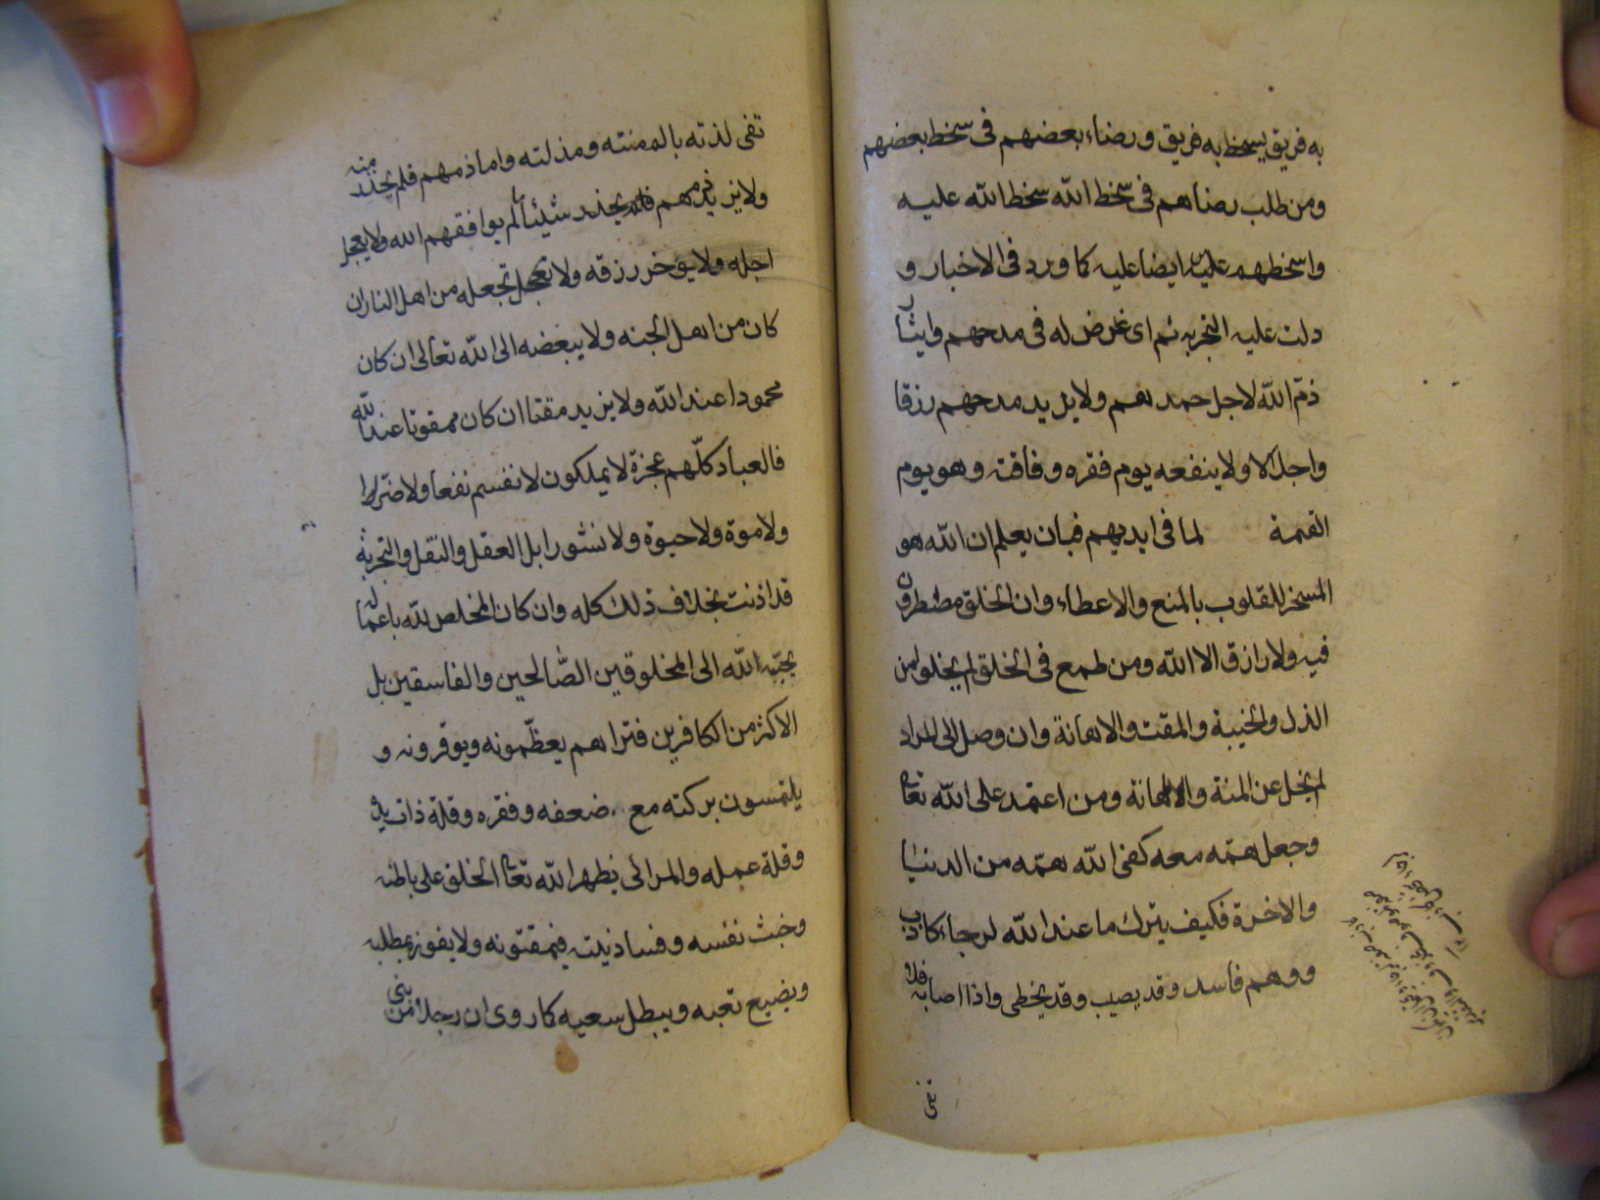 به فريق يسخط به فريق ورضاء بعضهم فى سخط بعضهم
ومن طلب رضاهم فى سخط الله سخط الله عليه
واسخطهم عليه ايضا عليه كما ورد فى الاخبار و
دلت عليه التجربه ثم اى غرض له فى مدحهم وايثار
ذمّ الله لاجل حمدهم ولا يزيد مدحهم رزقا
واجلا ولا ينفعه يوم فقره وفاقته وهو يوم
القيمة لما فى ايديهم فبان يعلم ان الله هو
المسخر للقلوب بالمنع والاعطاء وان الخلق مضطرون
فيه ولا رازق الا الله ومن طمع فى الخلق لم يخلو من
الذل والخيبة والمقت والاهانة وان وصل الى المراد
لم يخل عن المنة والاهانة ومن اعتمد على الله تعا
وجعل همّه معه كفى الله همّه من الدنيا
والاخرة فكيف يترك ما عند الله لرجاء كاذب
ووهم فاسد وقد يصيب وقد يخطى واذا اصابه فلا
تفى
تفى لذته بالم منته ومذلته واما ذمهم فلم يحذر منه
ولا يزيد ذمهم شيئا لم يوافقهم الله ولا يعجل
اجله ولا يؤخر رزقه ولا تجعله من اهل النار ان
كان من اهل الجنه ولا يبغضه الى الله تعالى ان كان
محمودا عند الله ولا يزيد مقتا ان كان ممقوتا عند الله
فالعباد كلّهم عجزة لا يملكون لانفسهم نفعا ولا ضرّا
ولا موة ولا حيوة ولا نشورا بل العقل والنقل والتجربة
قد اذنت بخلاف ذلك كله وان كان المخلص لله باعماله
يحبّبه الله الى المخلوقين الصّالحين والفاسقين بل
الاكثر من الكافرين فتراهم يعظّمونه ويوقرونه و
يلتمسون بركته مع ضعفه وفقره وقلة ذات يده
وقلة عمله والمرائى يظهر الله تعا الخلق على باطنه
وخبث نفسه وفساد نيته فيمقتونه ولا يفوز بمطلبه
ويضيع تعبه ويبطل سعيه كما روى ان رجلا من بنى